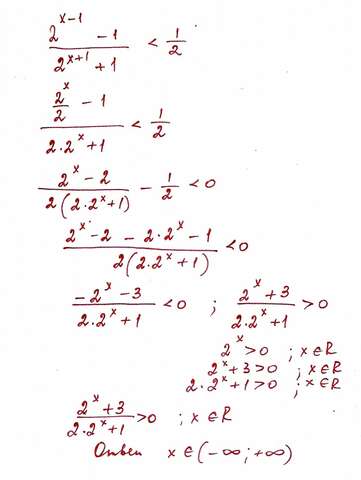 (2^(x-1) - 1)/(2^(x+1) + 1) < 1/2
(2^x/2 - 1)/(2·2^x + 1) < 1/2
(2^x - 2)/(2(2·2^x + 1)) - 1/2 < 0
(2^x - 2 - 2·2^x - 1)/(2(2·2^x + 1)) < 0
(-2^x - 3)/(2·2^x + 1) < 0 ; (2^x + 3)/(2·2^x + 1) > 0
2^x > 0 ; x ∈ R
2^x + 3 > 0 ; x ∈ R
2·2^x + 1 > 0 ; x ∈ R
(2^x + 3)/(2·2^x + 1) > 0 ; x ∈ R
Ответ x ∈ (-∞; +∞)